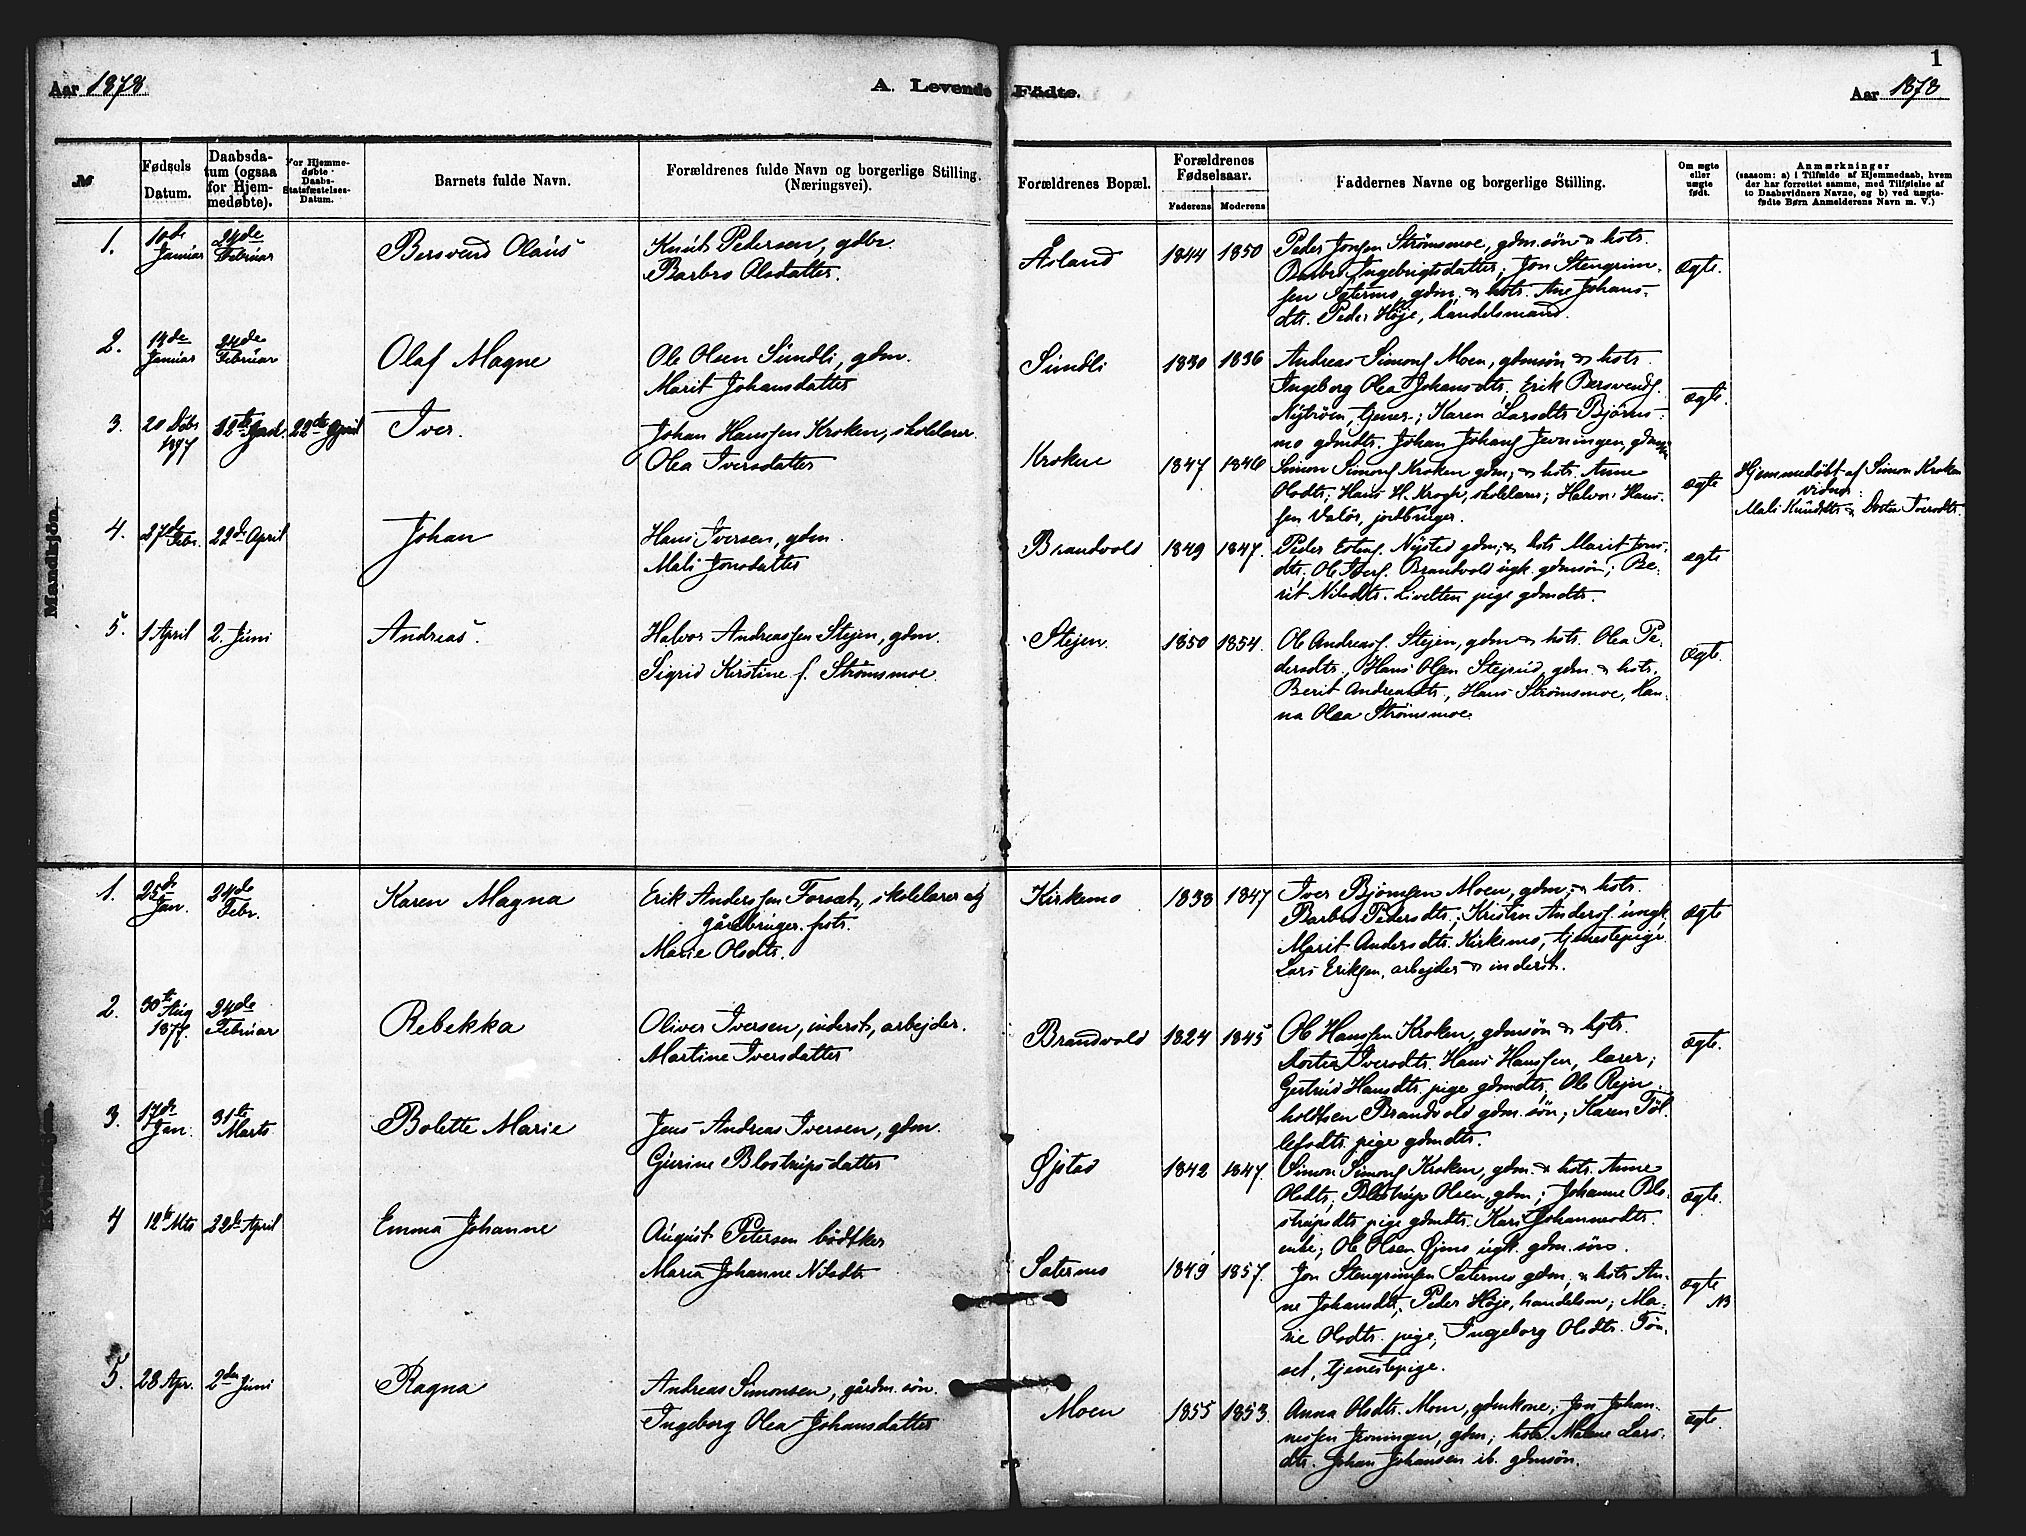 1
Aar 1878
A. Levende Födte.
Aar 1878
№
Fødsels Datum.
Daabsdatum (ogsaa for Hjemmedøbte).
For Hjemmedøbte Daabs-Statsfæstelses-Datum.
Barnets fulde Navn.
Forældrenes fulde Navn og borgerlige Stilling. (Næringsvei).
Forældrenes Bopæl.
Forældrenes Fødselsaar.
Faderens
Moderens
Faddernes Navne og borgerlige Stilling.
Om ægte eller uægte født.
Anmærkninger
(saasom: a) i Tilfælde af Hjemmedaab, hvem
der har forrettet samme, med Tilføielse af
to Daabsvidners Navne, og b) ved uægte-
fødte Børn Anmelderens Navn m. V.)
Mandkjön.
1. 10de Januar 24de Februar Bersvend Olaus
Knut Pedersen, gdbr.
Barbro Olsdatter.
Åsland 1844 1850
Peder Jonsen Strømsmoe, gdm.søn & hstr.
Barbro Ingebrigtsdatter; Jon Stengrim-
sen Sætermo, gdm. & hstr. Ane Johans-
dtr. Peder Høje, handelsmand.
ægte.
2. 14de Januar 24de Februar Olaf Magne
Ole Olsen Sundli, gdm.
Marit Johansdatter
Sundli 1830 1836
Andreas Simons. Moen, gdmsøn & hstr.
Ingeborg Olea Johansdtr, Erik Bersvends.
Nytrøen, tjener; Karen Larsdtr Bjørns-
mo gdmdtr. Johan Johans. Jevningen, gdmsøn
ægte.
3. 20 Debr 1877 22de April Iver.
Johan Hanssen Kroken, skolelærer.
Olea Iversdatter
Krokene 1847 1846
Simon Simons. Kroken gdm; & hstr. Anne
Olsdtr; Hans H. Krogh, skolelærer; Halvor Hans-
sen Valør, jordbruger.
ægte
Hjemmedøbt af Simon Kroken
vidner:
Mali Knudsdtr & Dortea Iversdtr.
4. 27de Febr. 22de April Johan
Hans Iversen, gdm.
Mali Jonsdatter
Brandvold 1849 1847.
Peder Estens. Nysted gdm; & hstr Marit Jons-
dtr. Ole Ivers. Brandvold ugk. gdmsøn; Be-
rit Nilsdtr. Livelten pige gdmdtr.
ægte
5. 1 April 2. Juni Andreas.
Halvor Andreassen Stejen, gdm.
Sigrid Kirstine f. Strømsmoe.
Stejen 1850 1854.
Ole Andreas. Stejen, gdm & hstr. Olea Pe-
dersdtr, Hans Olsen Stejrud, gdm. & hstr.
Berit Andreasdtr, Hans Strømsmoe, Han-
na Olea Strømsmoe
Ægte.
1. 25de Jan. 24de Febr. Karen Magna
Erik Anderssen Forset, skolelærer og
gårdbruger. hstr.
Marie Olsdtr.
Kirkemo 1838 1847
Iver Bjørnsen Moen, gdm. & hstr.
Barbro Pedersdtr; Kristen Anders. ungk.
Marit Andersdtr. Kirkemo, tjenestepige.
Lars Eriksen, arbejder & inderst.
ægte
2. 30te Aug 1877. 24de Februar Rebekka
Oliver Iversen, inderst, arbejder.
Martine Iversdatter
Brandvold 1824 1845
Ole Hanssen Kroken, gdmsøn & hstr.
Dortea Iversdtr. Hans Hanssen, lærer;
Gertrud Hansdtr, pige gdmdtr, Ole Rejn-
holdtsen Brandvold gdm.søn; Karen Tøl-
lefsdtr. pige gdmdtr.
ægte.
3. 17de Jan. 31te Marts Bolette Marie
Jens Andreas Iversen, gdm.
Gjurine Blostrupsdatter
Øjstad 1842 1847.
Simon Simons. Kroken, gdm. & hstr. Anne
Olsdtr, Blostrup Olsen, gdm; Johanne Blo-
strupsdtr pige gdmdtr. Kari Johannesdtr.
enke; Ole Olsen Øjmo ugk. gdm.søn.
ægte.
4 12te Mts 22de April Emma Johanne
August Petersen bødtker
Maria Johanne Nilsdtr
Sætermo 1849 1857.
Jon Stengrimsen Sætermo gdm, & hstr An-
ne Johansdtr, Peder Høje, handelsm; Ma-
rie Olsdtr. pige; Ingeborg Olsdtr. Tøn-
set, tjenestepige.
ægte NB
5. 28 Apr. 2den Juni Ragna
Andreas Simonsen, gårdm.søn.
Ingeborg Olea Johansdatter
Moen 1855 1853.
Anna Olsdtr. Moen, gdmkone; Jon Johan-
nessen Jevningen, gdm; hstr. Malene Lars-
dtr. Johan Johansen ib. gdmsøn.
ægte.